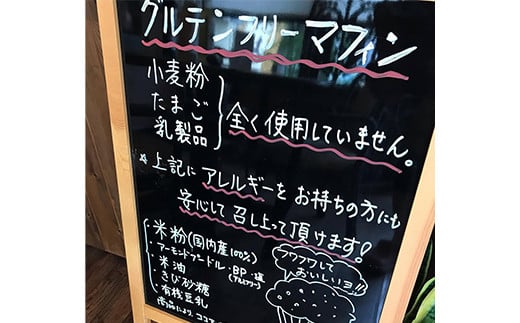 グルテンフリーマフィン
小麦粉
たまご
乳製品
全く使用していません。
☆上記にアレルギーをお持ちの方にも
安心して召し上って頂けます!
・米粉(国内産100%)
・アーモンドプードル・BP・塩
(アルミフリー)
・米油
・きび砂糖
・有機豆乳
商品により、ココア
フワフワして
おいしいョ!!